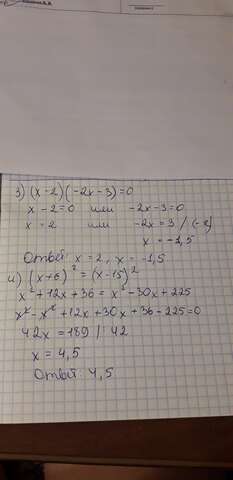 3) (x-2)(-2x-3)=0
x-2=0 или -2x-3=0
x=2 или -2x=3 /(-2)
x=-1,5
Ответ: x=2, x=-1,5
4) (x+6)²=(x-15)²
x²+12x+36=x²-30x+225
x²-x²+12x+30x+36-225=0
42x=189 /:42
x=4,5
Ответ: 4,5